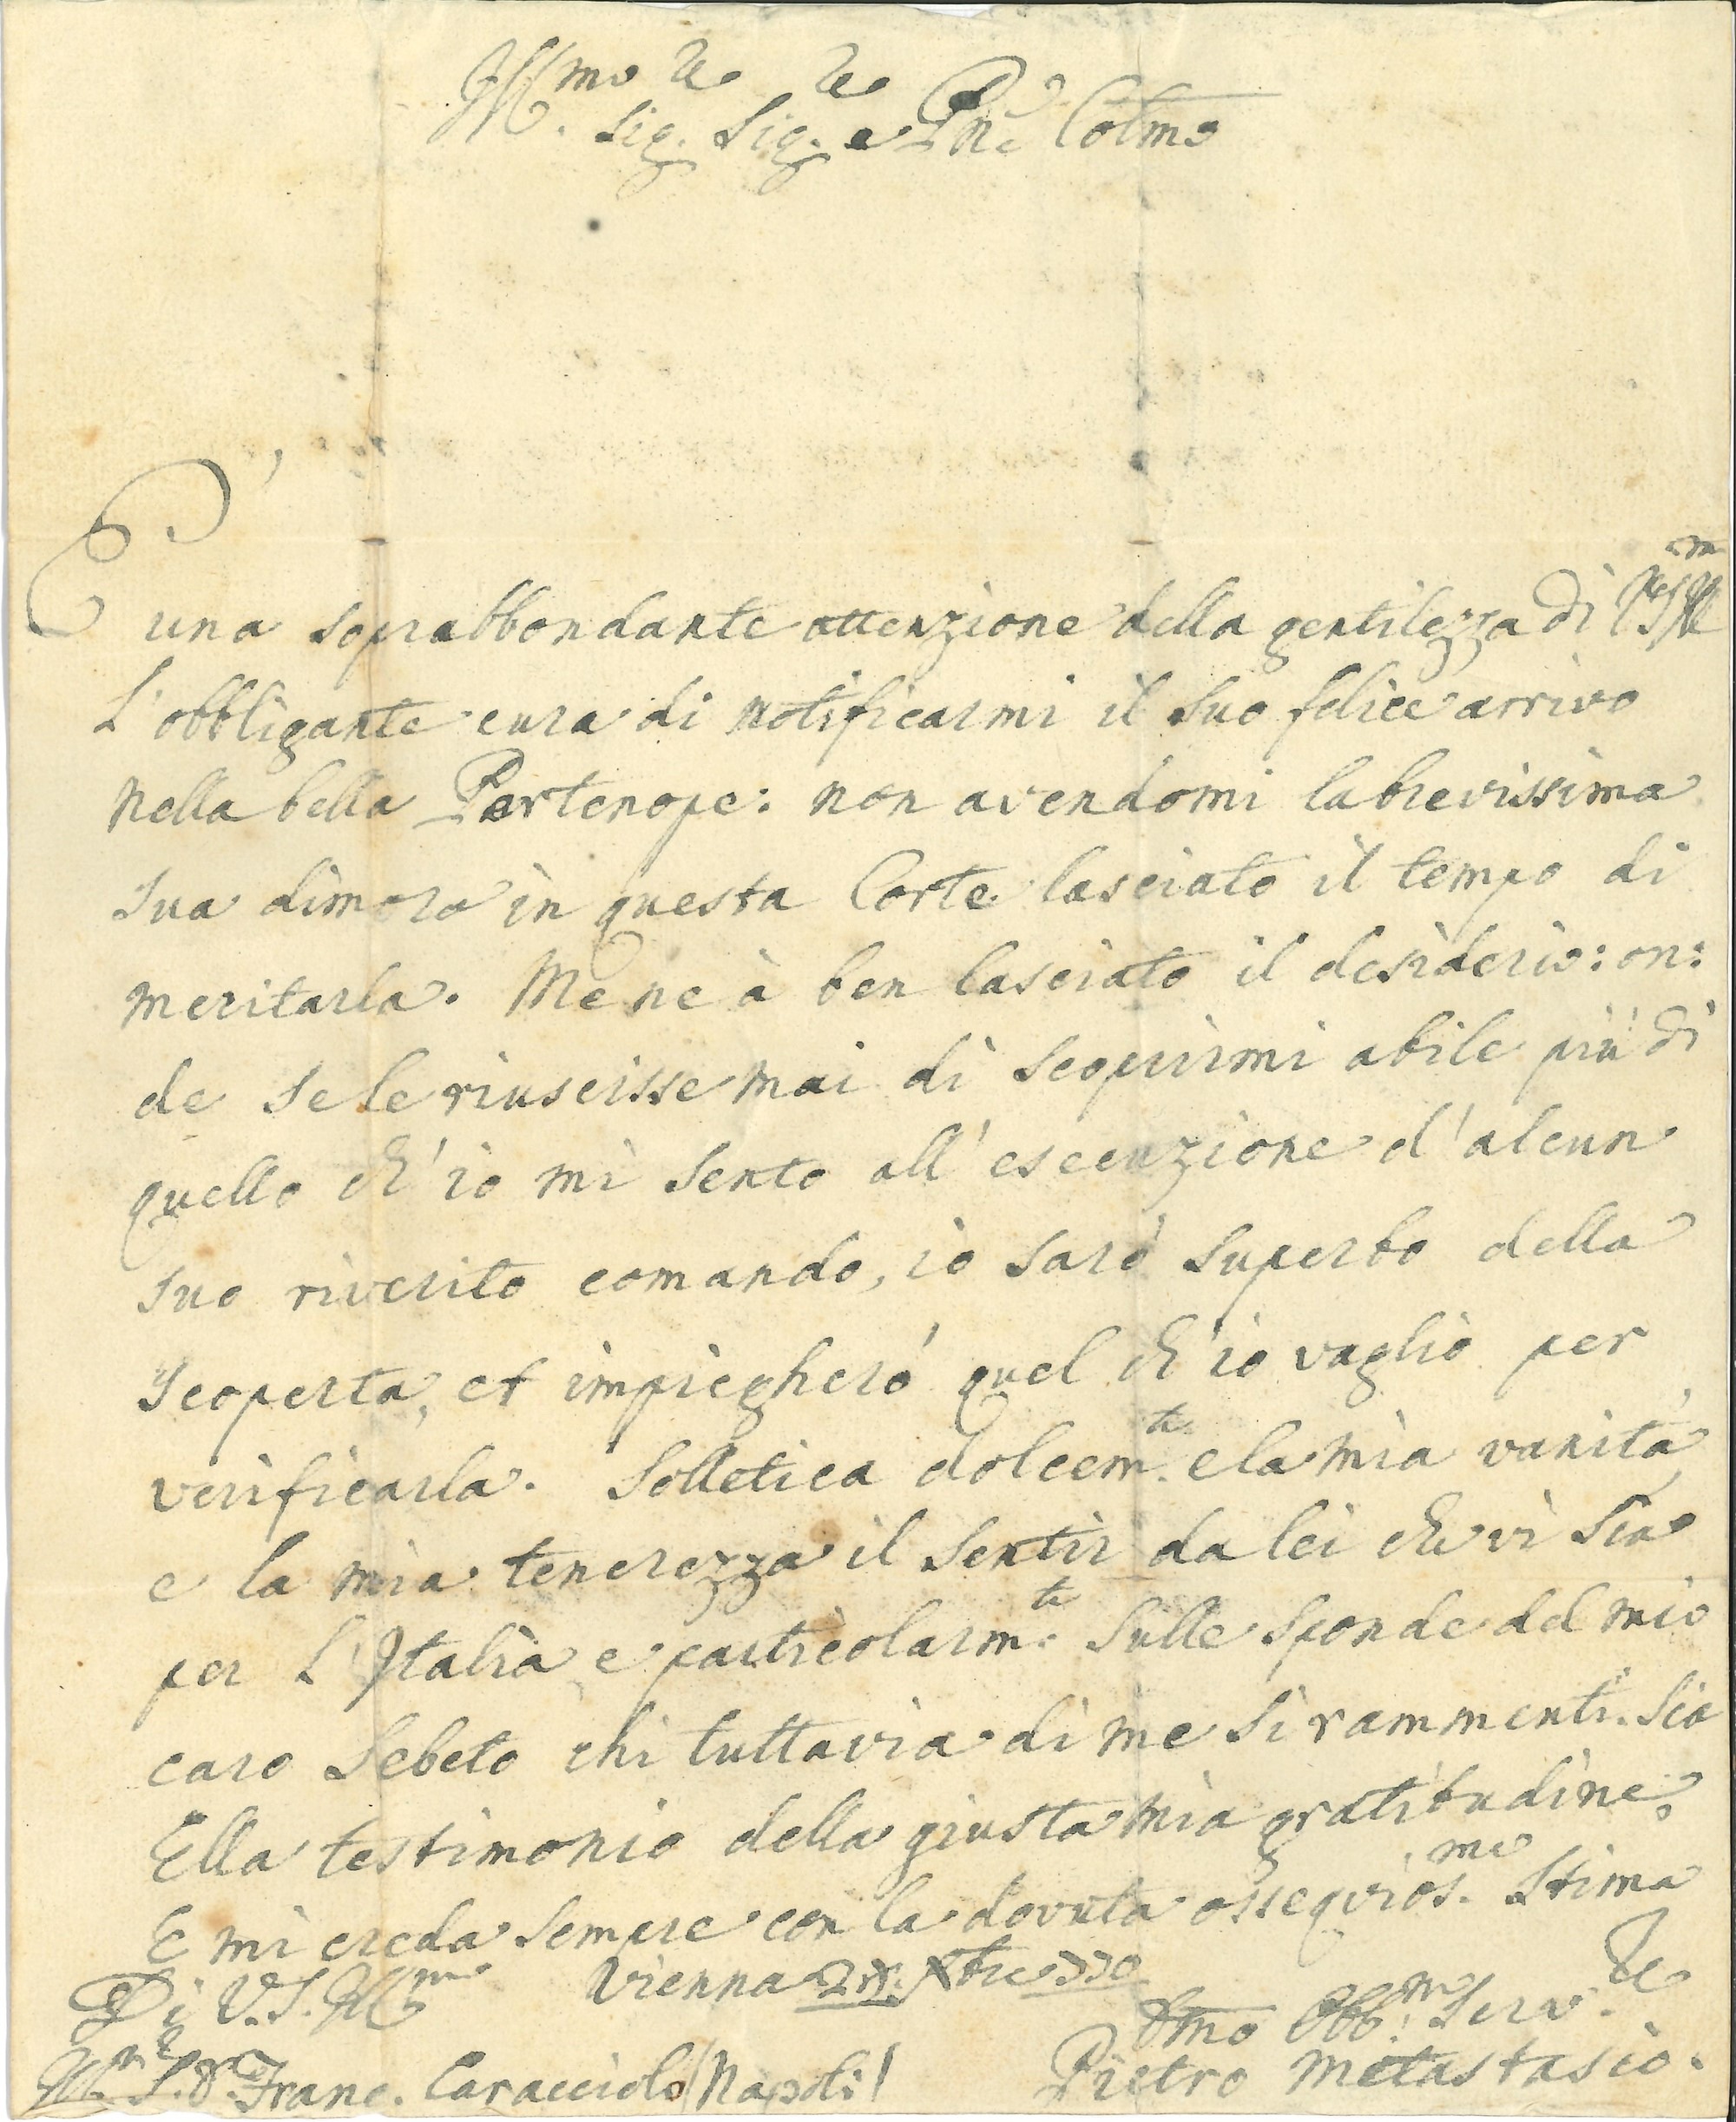 Ill.mo Sig.re Sig.re e Pne Colmo
È una soprabbondante attenzione della gentilezza di V.S. Ill.ma
L'obbligante cura di notificarmi il suo felice arrivo
nella bella Partenope: non avendomi la brevissima
sua dimora in questa Corte lasciato il tempo di
meritarla. Me ne à ben lasciato il desiderio: on:
de se le riuscisse mai di scoprirmi abile più di
quello ch'io mi sento all'esecuzione d'alcun
suo riverito comando, io sarò superbo della
scoperta, et impiegherò quel ch'io vaglio per
verificarla. Solletica dolcem.te e la mia vanità,
e la mia tenerezza il sentir da lei che vi sia
per L'Italia, e particolarm.te sulle sponde del mio
caro Sebeto chi tuttavia di me si rammenti. Sia
Ella testimonio della giusta mia gratitudine,
E mi creda sempre con la dovuta ossequios.ma stima
Di V.S. Ill.ma Vienna Xbre
Dmo Obb.mo Serv.re
Ill.mo S.r D. Franc. Caracciolo (Napoli) Pietro Metastasio.